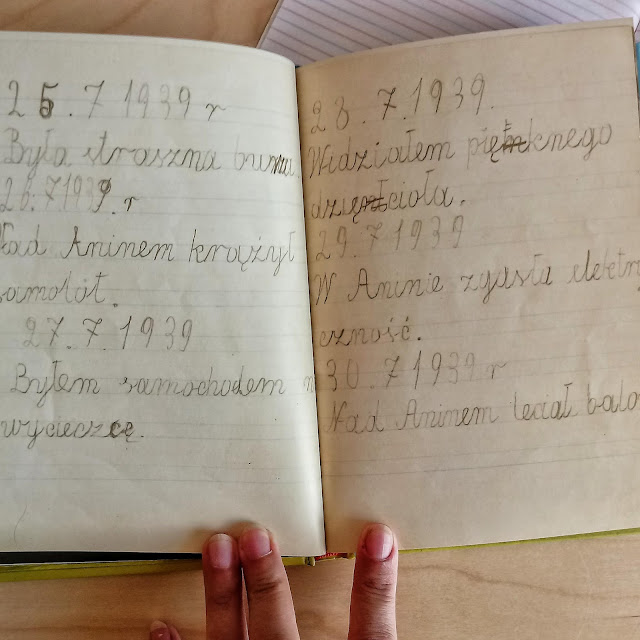 25.7 1939 r
Była straszna burza.
26.7 1939. r
Nad Aninem krążył
samolot.
27.7.1939
Byłem samochodem n
wycieczcę.
28.7.1939.
Widziałem pięknego
dzięcioła.
29.7 1939
W Aninie zgasła elektry
czność.
30.7 1939 r
Nad Aninem leciał balo